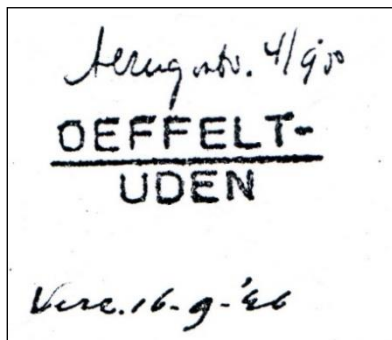 terug ontv. 4/9 '50
OEFFELT-
UDEN
Verz. 16-9-'46